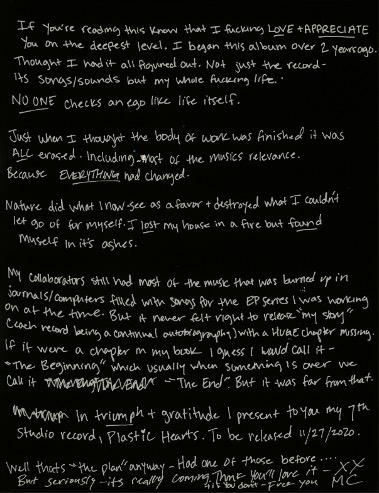 If you're reading this know that I fucking LOVE + APPRECIATE
You on the deepest level. I began this album over 2 years ago.
Thought I had it all figured out. Not just the record -
its songs/sounds but my whole fucking life..
NO ONE checks an ego like life itself.
Just when I thought the body of work was finished it was
ALL erased. Including most of the musics relevance.
Because EVERYTHING had changed.
Nature did what I now see as a favor + destroyed what I couldn't
let go of for myself. I lost my house in a fire but found
myself in it's ashes.
My collaborators still had most of the music that was burned up in
journals/computers filled with songs for the EP series I was working
on at the time. But it never felt right to release "my story"
(each record being a continual autobiography) with a HUGE chapter missing.
If it were a chapter in my book I guess I would call it -
"The Beginning" which usually when something is over we
call it - "The End". But it was far from that.
In triumph + gratitude I present to you my 7th
Studio record, Plastic Hearts. To be released 11/27/2020.
Well thats "the plan" anyway - Had one of those before....
But seriously - its really coming. Think You'll love it - XX
+ if you don't - F*ck you MC